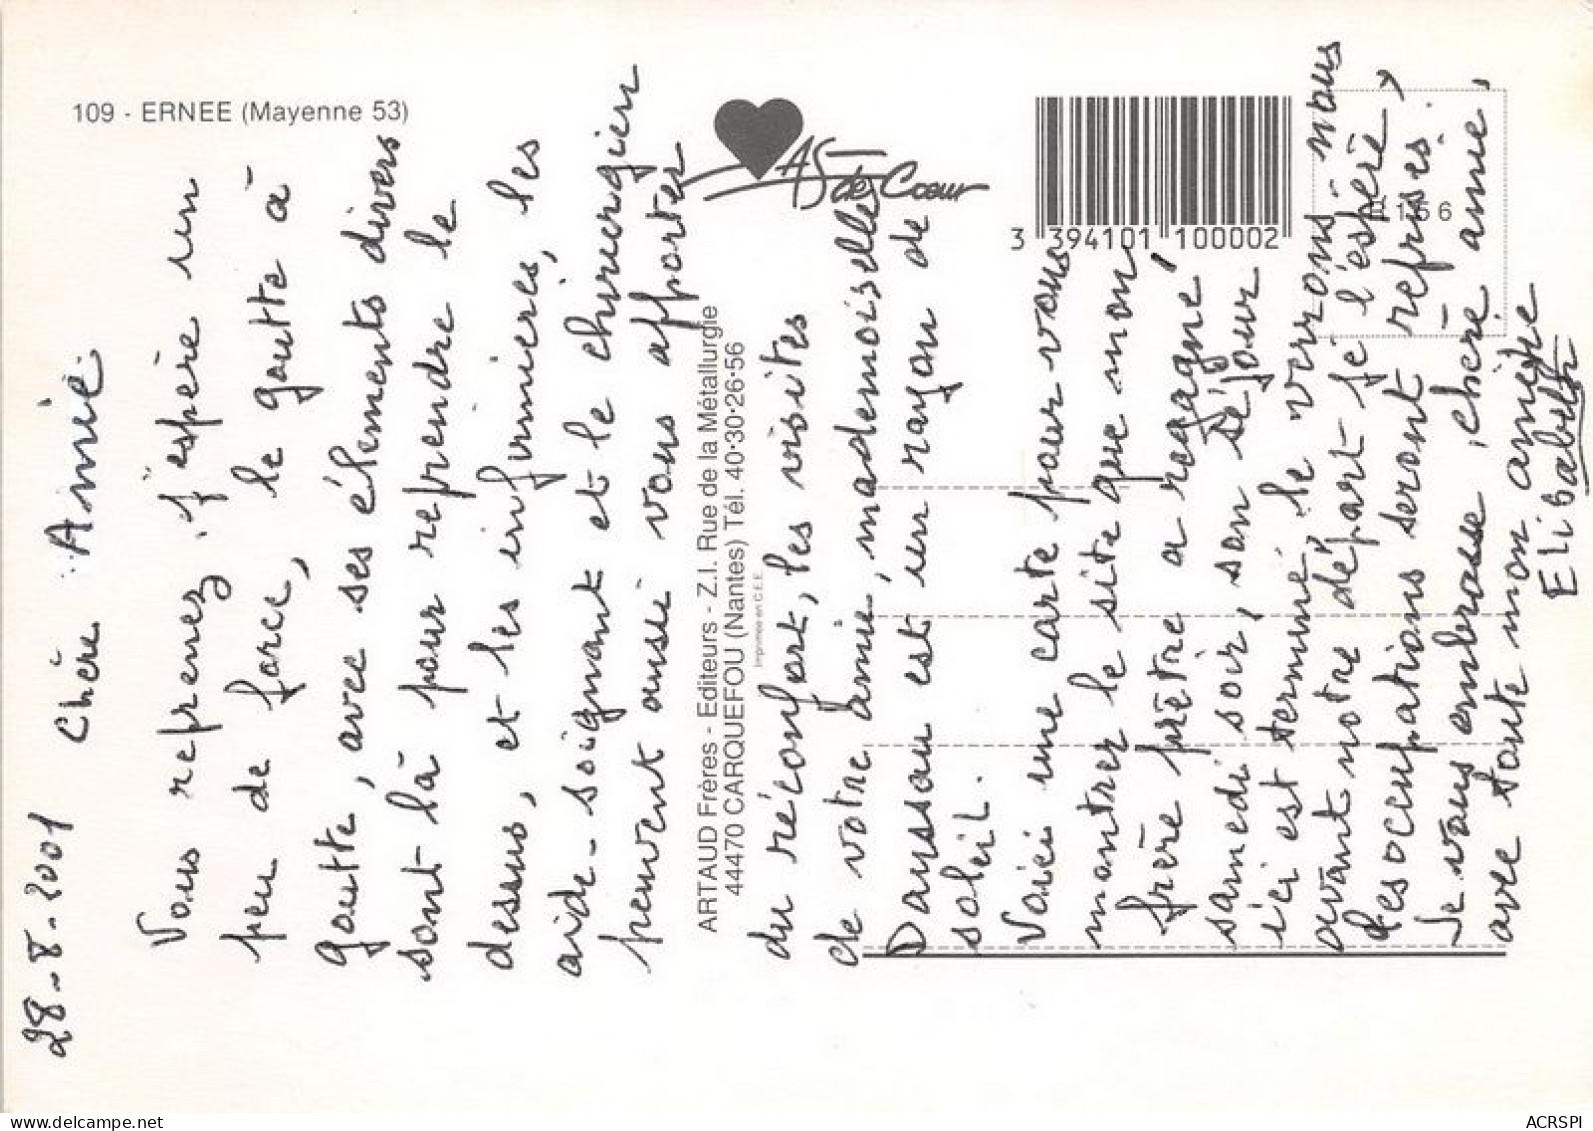 109 - ERNEE (Mayenne 53)
AS de Cœur
3 394101 100002
ARTAUD Frères - Editeurs - Z.I. Rue de la Métallurgie
44470 CARQUEFOU (Nantes) Tél. 40·30·26·56
Imprimée en C.E.E.
28-8-2001 Chère Amie
Vous reprenez, j'espère un
peu de force, le goutte à
goutte, avec ses éléments divers
sont là pour reprendre le
dessus, et les infirmières, les
aide-soignant et le chirurgien
peuvent aussi vous apporter
du réconfort, les visites
de votre amie, mademoiselle
est un rayon de
soleil.
Voici une carte pour vous
montrer le site que mon
frère prêtre a regagné,
samedi soir, son séjour
ici est terminé, le verrons-nous
avant notre départ je l'espère,
les occupations seront reprises.
Je vous embrasse, chère amie,
avec toute mon amitié
Elisabeth
delcampe.net
ACRSPI